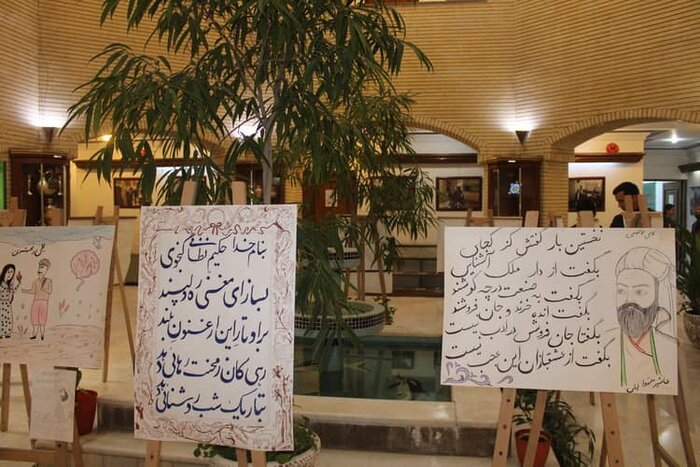 بنام خدا حکیم نظامی گنجوی
بساز ای مغنی ره دلپسند
بر اوتار این ارغنون بلند
رهی کان ز محنت رهائی دهد
بتاریک شب روشنائی دهد
نخستین بار گفتش کز کجائی
بگفت از دار ملک آشنائی
بگفت به صنعت در چه کوشند
بگفت انده خرند و جان فروشند
بگفتا جان فروشی در ادب نیست
بگفت از عشقبازان این عجب نیست